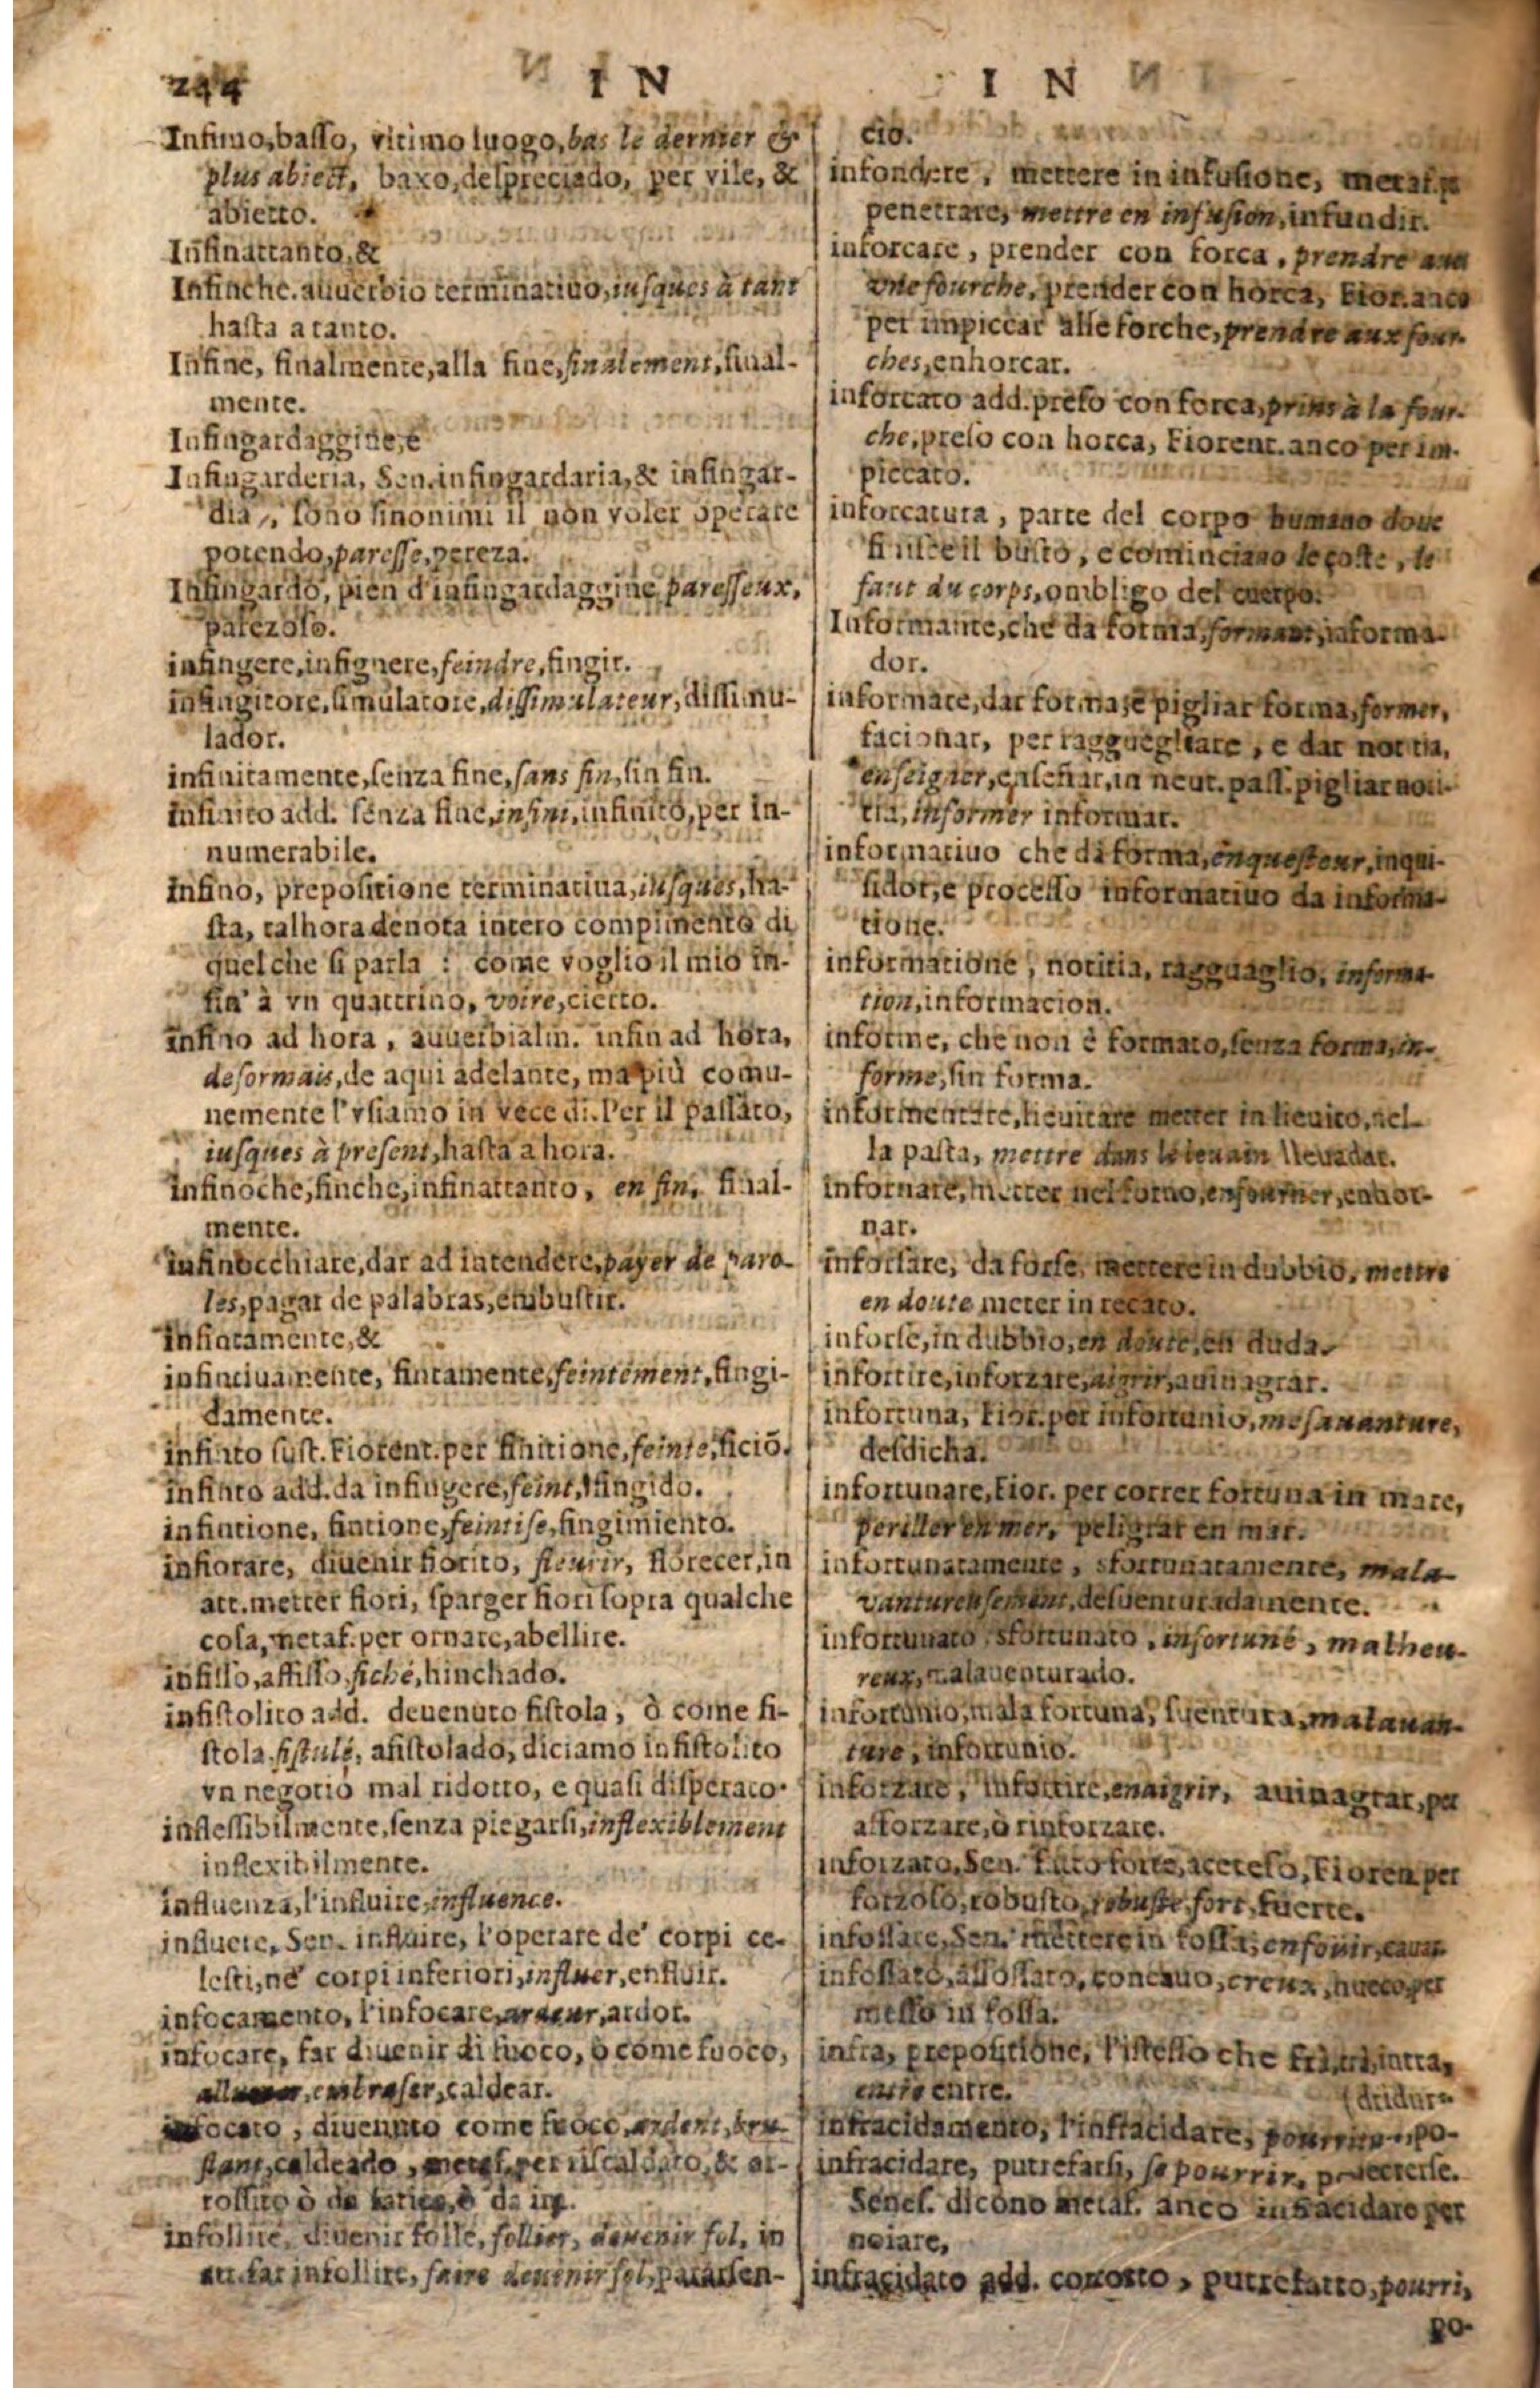 244 IN
Infimo, basso, vltimo luogo, bas le dernier &
plus abiect, baxo, despreciado, per vile, &
abietto.
Infinattanto, &
Infinche. auuerbio terminatiuo, iusques à tant
hasta a tanto.
Infine, finalmente, alla fine, finalement, final-
mente.
Infingardaggine, e
Infingarderia, Sen. infingardaria, & infingar-
dia, sono sinonimi il non voler operare
potendo, paresse, pereza.
Infingardo, pien d'infingardaggine paresseux,
parezoso.
infingere, infignere, feindre, fingir.
infingitore, simulatore, dissimulateur, dissimu-
lador.
infinitamente, senza fine, sans fin, sin fin.
infinito add. senza fine, infini, infinito, per in-
numerabile.
infino, prepositione terminatiua, iusques, ha-
sta, talhora denota intero compimento di
quel che si parla : come voglio il mio in-
fin' à vn quattrino, voire, cierto.
infino ad hora, auuerbialm. infin ad hora,
desormais, de aqui adelante, ma più comu-
nemente l'vsiamo in vece di. Per il passato,
iusques à present, hasta ahora.
infinoche, finche, infinattanto, en fin, final-
mente.
infinocchiare, dar ad intendere, payer de paro-
les, pagar de palabras, embustir.
infintamente, &
infintiuamente, fintamente, feintement, fingi-
damente.
infinto sust. Fiorent. per finitione, feinte, ficiõ.
infinto add. da infingere, feint, fingido.
infintione, fintione, feintise, fingimiento.
infiorare, diuenir fiorito, fleurir, florecer, in
att. metter fiori, sparger fiori sopra qualche
cosa, metaf. per ornare, abellire.
infisso, affisso, fiché, hinchado.
infistolito add. deuenuto fistola, ò come fi-
stola, fistulé, afistolado, diciamo infistolito
vn negotio mal ridotto, e quasi disperato.
inflessibilmente, senza piegarsi, inflexiblement
inflexibilmente.
influenza, l'influire, influence.
influere, Sen. influire, l'operare de' corpi ce-
lesti, ne' corpi inferiori, influer, enfluir.
infocamento, l'infocare, ardeur, ardor.
infocare, far diuenir di fuoco, ò come fuoco,
allumer, embraser, caldear.
infocato, diuenuto come fuoco, ardent, bru-
slant, caldeado, metaf. per riscaldato, & ar-
rossito ò da fatica, ò da ira.
infollire, diuenir folle, follier, deuenir fol, in
att. far infollire, faire deuenir fol, pararsen-
IN
cio.
infondere, mettere in infusione, metaf. p
penetrare, mettre en infusion, infundir.
inforcare, prender con forca, prendre auec
vne fourche, prender con horca, Fior. anco
per impiccar alle forche, prendre aux four-
ches, enhorcar.
inforcato add. preso con forca, prins à la four-
che, preso con horca, Fiorent. anco per im-
piccato.
inforcatura, parte del corpo humano doue
finisce il busto, e cominciano le coste, le
faut du corps, ombligo del cuerpo.
Informante, che da forma, formant, informa-
dor.
informare, dar forma, e pigliar forma, former,
facionar, per ragguegliare, e dar notitia,
enseigner, enseñar, in neut. pass. pigliar noti-
tia, informer informar.
informatiuo che dà forma, enquesteur, inqui-
sidor, e processo informatiuo da informa-
tione.
informatione, notitia, ragguaglio, informa-
tion, informacion.
informe, che non è formato, senza forma, in-
forme, sin forma.
informentare, lieuitare metter in lieuito, nel-
la pasta, mettre dans le leuain lleuadar.
infornare, metter nel forno, enfourner, enhor-
nar.
inforsare, da forse, mettere in dubbio, mettre
en doute meter in recato.
inforse, in dubbio, en doute, en duda.
infortire, inforzare, aigrir, auinagrar.
infortuna, Fior. per infortunio, mesauanture,
desdicha.
infortunare, Fior. per correr fortuna in mare,
periller en mer, peligrar en mar.
infortunatamente, sfortunatamente, mala-
vantureusement, desuenturadamente.
infortunato, sfortunato, infortuné, malheu-
reux, malauenturado.
infortunio, mala fortuna, suentura, malauan-
ture, infortunio.
inforzare, infortire, enaigrir, auinagrar, per
afforzare, ò rinforzare.
inforzato, Sen. fatto forte, acetoso, Fioren per
forzoso, robusto, robuste, fort, fuerte.
infossare, Sen. mettere in fossa, enfouir, cauar
infossato, affossato, concauo, creux, hueco, per
messo in fossa.
infra, prepositione, l'istesso che frà, trà, intra,
entre entre.
infracidamento, l'infracidare, po-
infracidare, putrefarsi, se pourrir, podrecerse.
Senes. dicono metaf. anco infracidare per
noiare,
infracidato add. corrotto, putrefatto, pourri,
po-